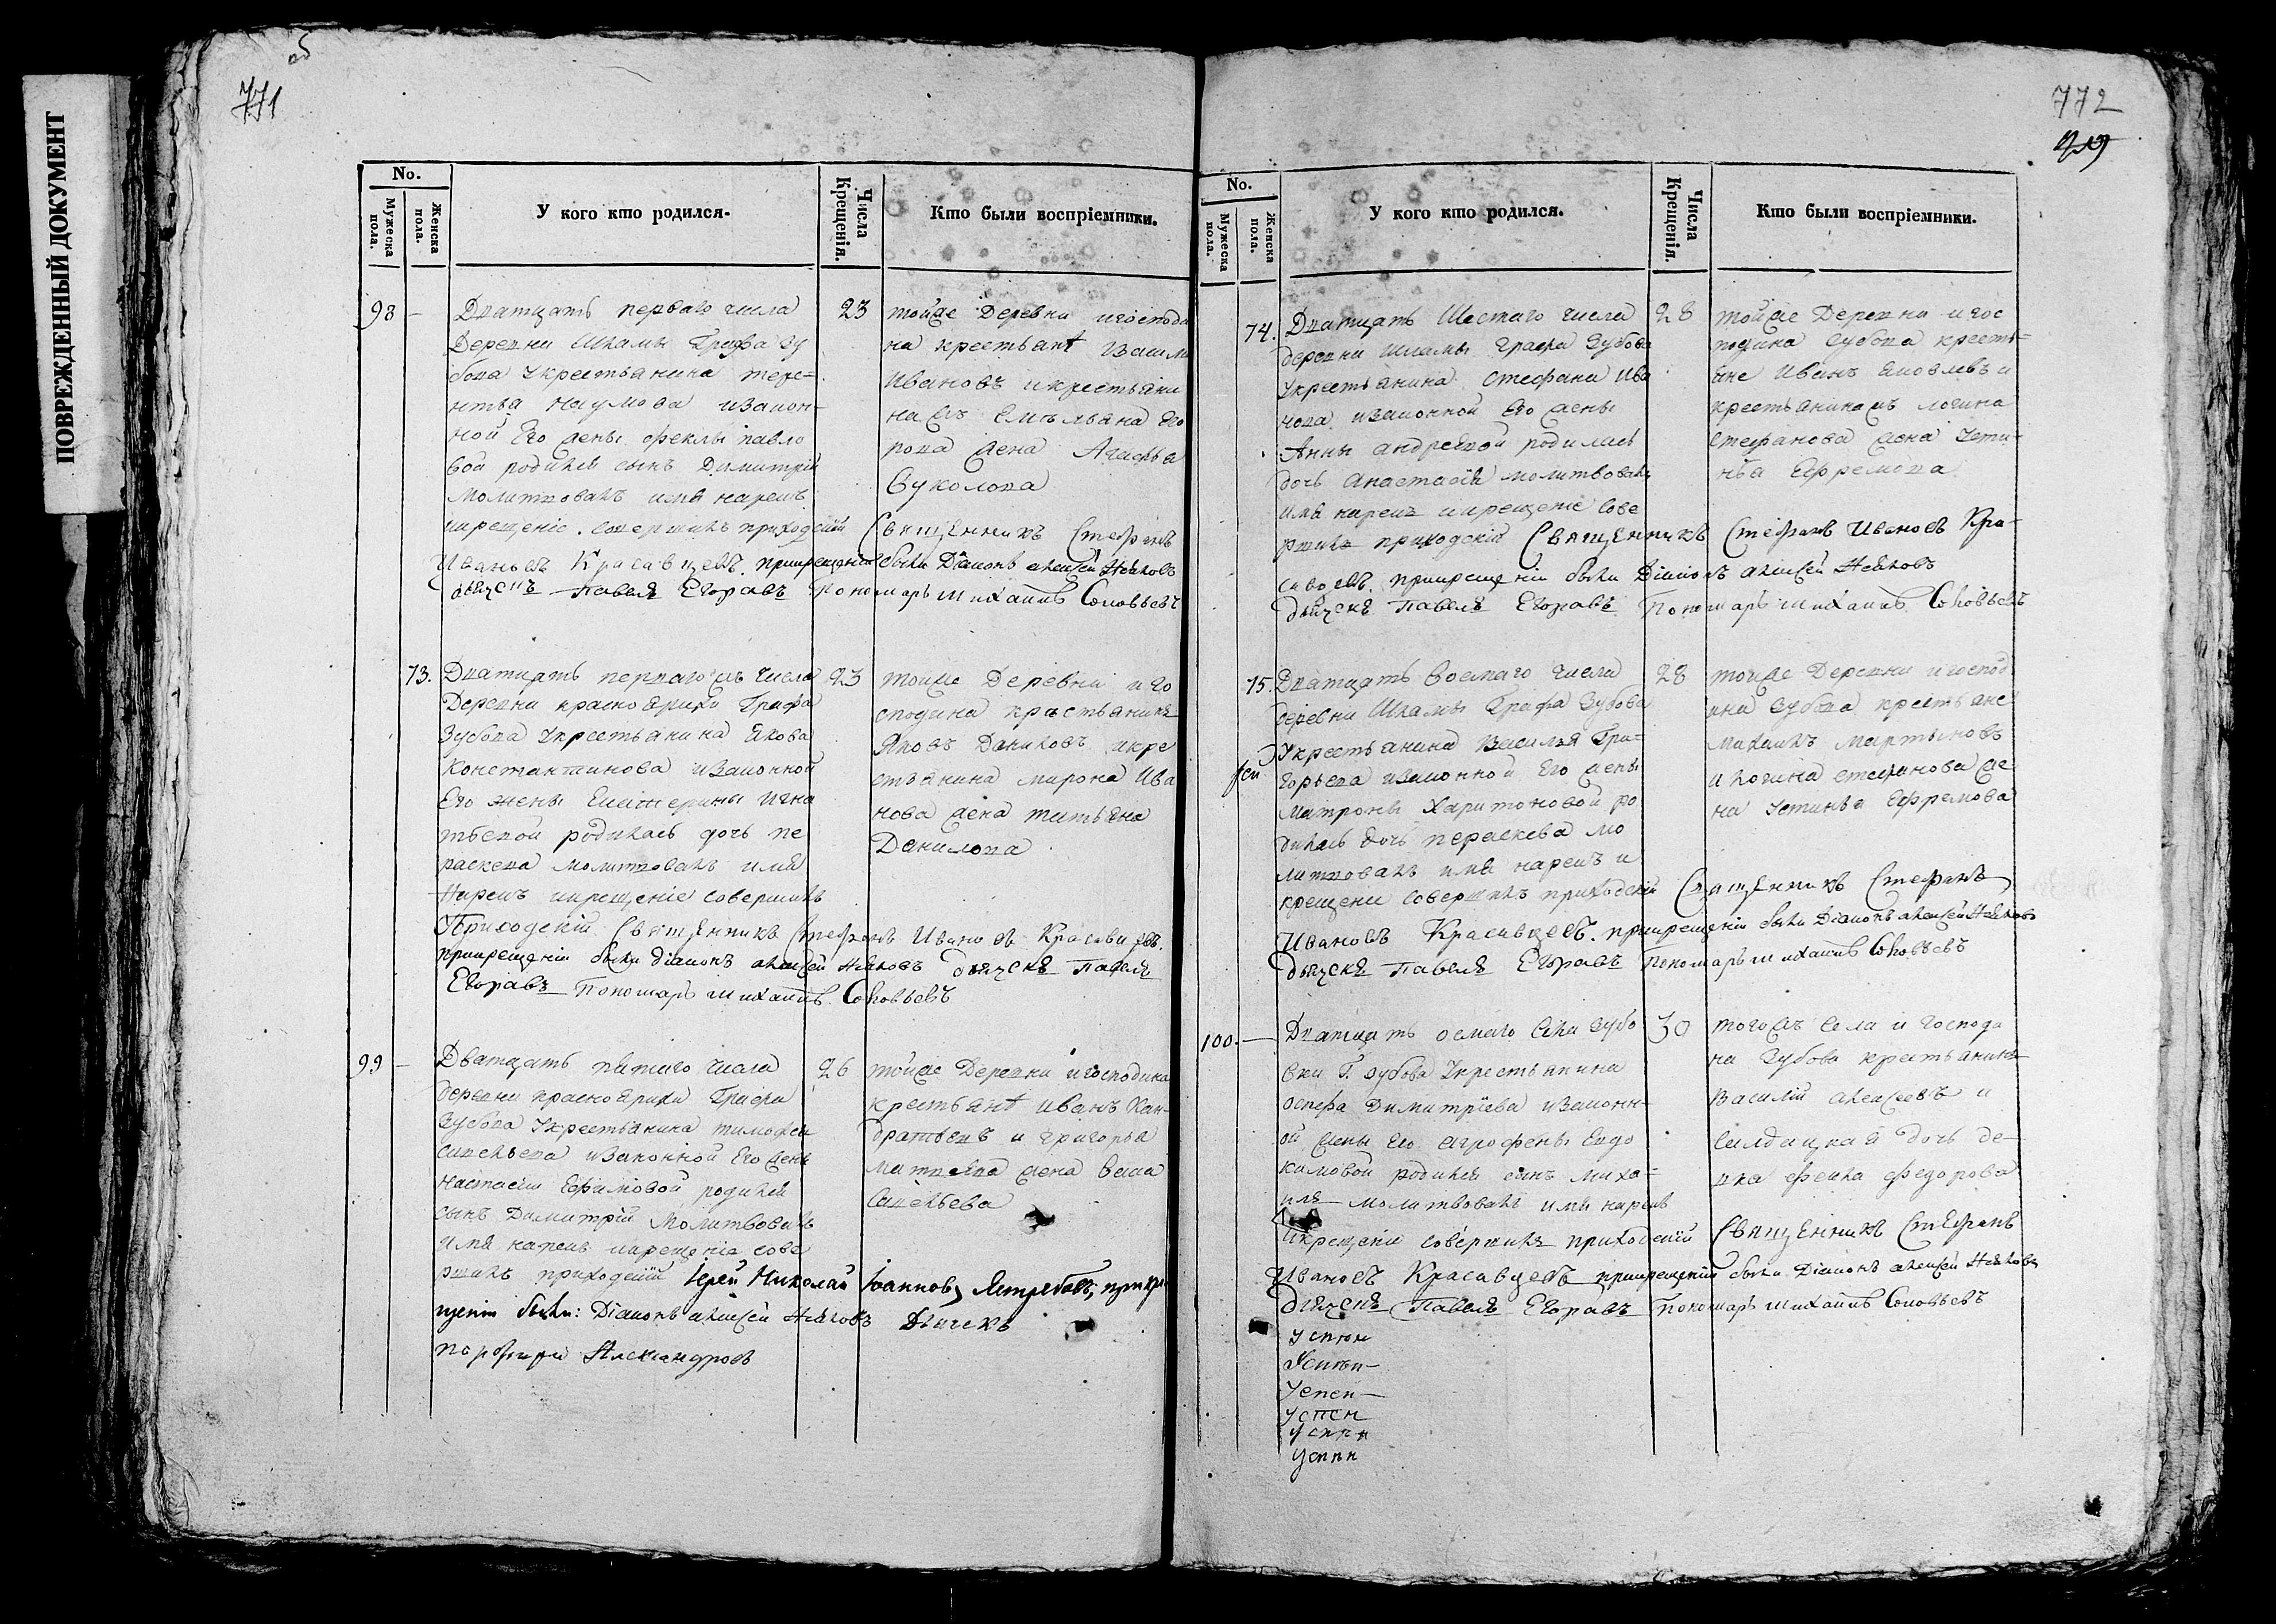 ПОВРЕЖДЕННЫЙ ДОКУМЕНТ
об
771
No.
Мужеска пола.
Женска пола.
У кого кто родился.
Числа Крещенія.
Кто были воспріемники.
98 –
Дватцать перваго числа
Деревни Шкамы Графа Зу
бова Укрестьянина тере=
нтья Наумова изакон=
ной Его жены феклы павло
вой родился сынъ Димитрій
молитвовалъ имя нарекъ
икрещеніе совершилъ приходскій Священникъ Стефанъ
Ивановъ Красавцевъ. прикрещеніи были Діаконъ алексей
дьячекъ Павелъ Егоравъ Пономарь михаилъ Соловьевъ
23
тойже Деревни игосподи
на крестьян
Ивановъ икрестьяни
на Емельяна Его
рова жена Агафья
Вуколова
73.
Дватцать перваго жъ числа
Деревни красноярихи Графа
Зубова Укрестьянина Якова
Константинова изаконной
Его жены Екатерины Игна
тьевой родилась дочь пе
раскева молитвовалъ имя
Нарекъ икрещеніе совершилъ
Приходскій Священникъ Стефанъ Ивановъ Красавцевъ.
прикрещеніи были діаконъ алексей дьячекъ Павелъ
Егоравъ Пономарь михаилъ Соловьевъ
23
тойже Деревни иго
сподина крестьянинъ
Яковъ Даниловъ икре
стьянина мирона Ива
нова жена татьяна
Данилова
99 –
Дватцать пятаго числа
деревни красноярихи Графа
Зубова Укрестьянина тимофея
савельева изаконной Его жены
Настасіи Ефимовой родился
сынъ Димитрій молитвовалъ
имя нарекъ икрещеніе сове
ршилъ приходскій Іерей Николай Іоанновъ Ястребовъ, прикре
щеніи были: Діаконъ алексей Дьячекъ
порфирій Александровъ
26
тойже Деревни игосподина
крестьян иванъ Кан=
дратьевъ и григорья
матвеева жена
Савельева
772
No.
Мужеска пола.
Женска пола.
У кого кто родился.
Числа Крещенія.
Кто были воспріемники.
74.
Дватцать Шестаго числа
деревни шкамы графа Зубова
Укрестьянина Стефана Ива
нова изаконной Его жены
Анны андреевой родилась
дочь Анастасія молитвовалъ
имя нарекъ икрещеніе сове
ршилъ приходскій Священникъ Стефанъ Ивановъ Кра=
савцевъ. прикрещеніи были Діаконъ алексей
дьячекъ Павелъ Егоравъ Пономарь михаилъ Соловьевъ
28
тойже Деревни игос
подина Зубова кресть=
яне Иванъ Яковлевъ и
крестьянина логина
стефанова жена Усти=
нья Ефремова
75.
Дватцать восмаго числа
деревни Шкамы Графа Зубова
Укрестьянина Василья Гри=
горьева изаконной Его жены
матроны Харитоновой ро
дилась дочь пераскева мо
литвовалъ имя нарекъ и
крещение совершилъ приходскій Священникъ Стефанъ
Ивановъ Красавцевъ. прикрещеніи были Діаконъ алексей
дьячекъ Павелъ Егоравъ Пономарь михаилъ Соловьевъ
28
тойже Деревни игоспод
ина Зубова крестьяне
михаилъ мартыновъ
и логина стефанова же
на Устинья Ефремова
100. –
Дватцать осмаго Села Зубо
вки Г. Зубова Укрестьянина
осифа Димитріева изаконн=
ой жены его агрофены Евдо
кимовой родился сынъ миха=
илъ молитвовалъ имя нарекъ
икрещеніе совершилъ приходскій Священникъ Стефанъ
Ивановъ Красавцевъ прикрещеніи были Діаконъ алексей
дьячекъ Павелъ Егоравъ Пономарь михаилъ Соловьевъ
30
тогожъ Села и Господи
на Зубова крестьянинъ
василій алексеевъ и
салдацкая дочь де=
вка фекла федорова
Успен
Успен
Успен